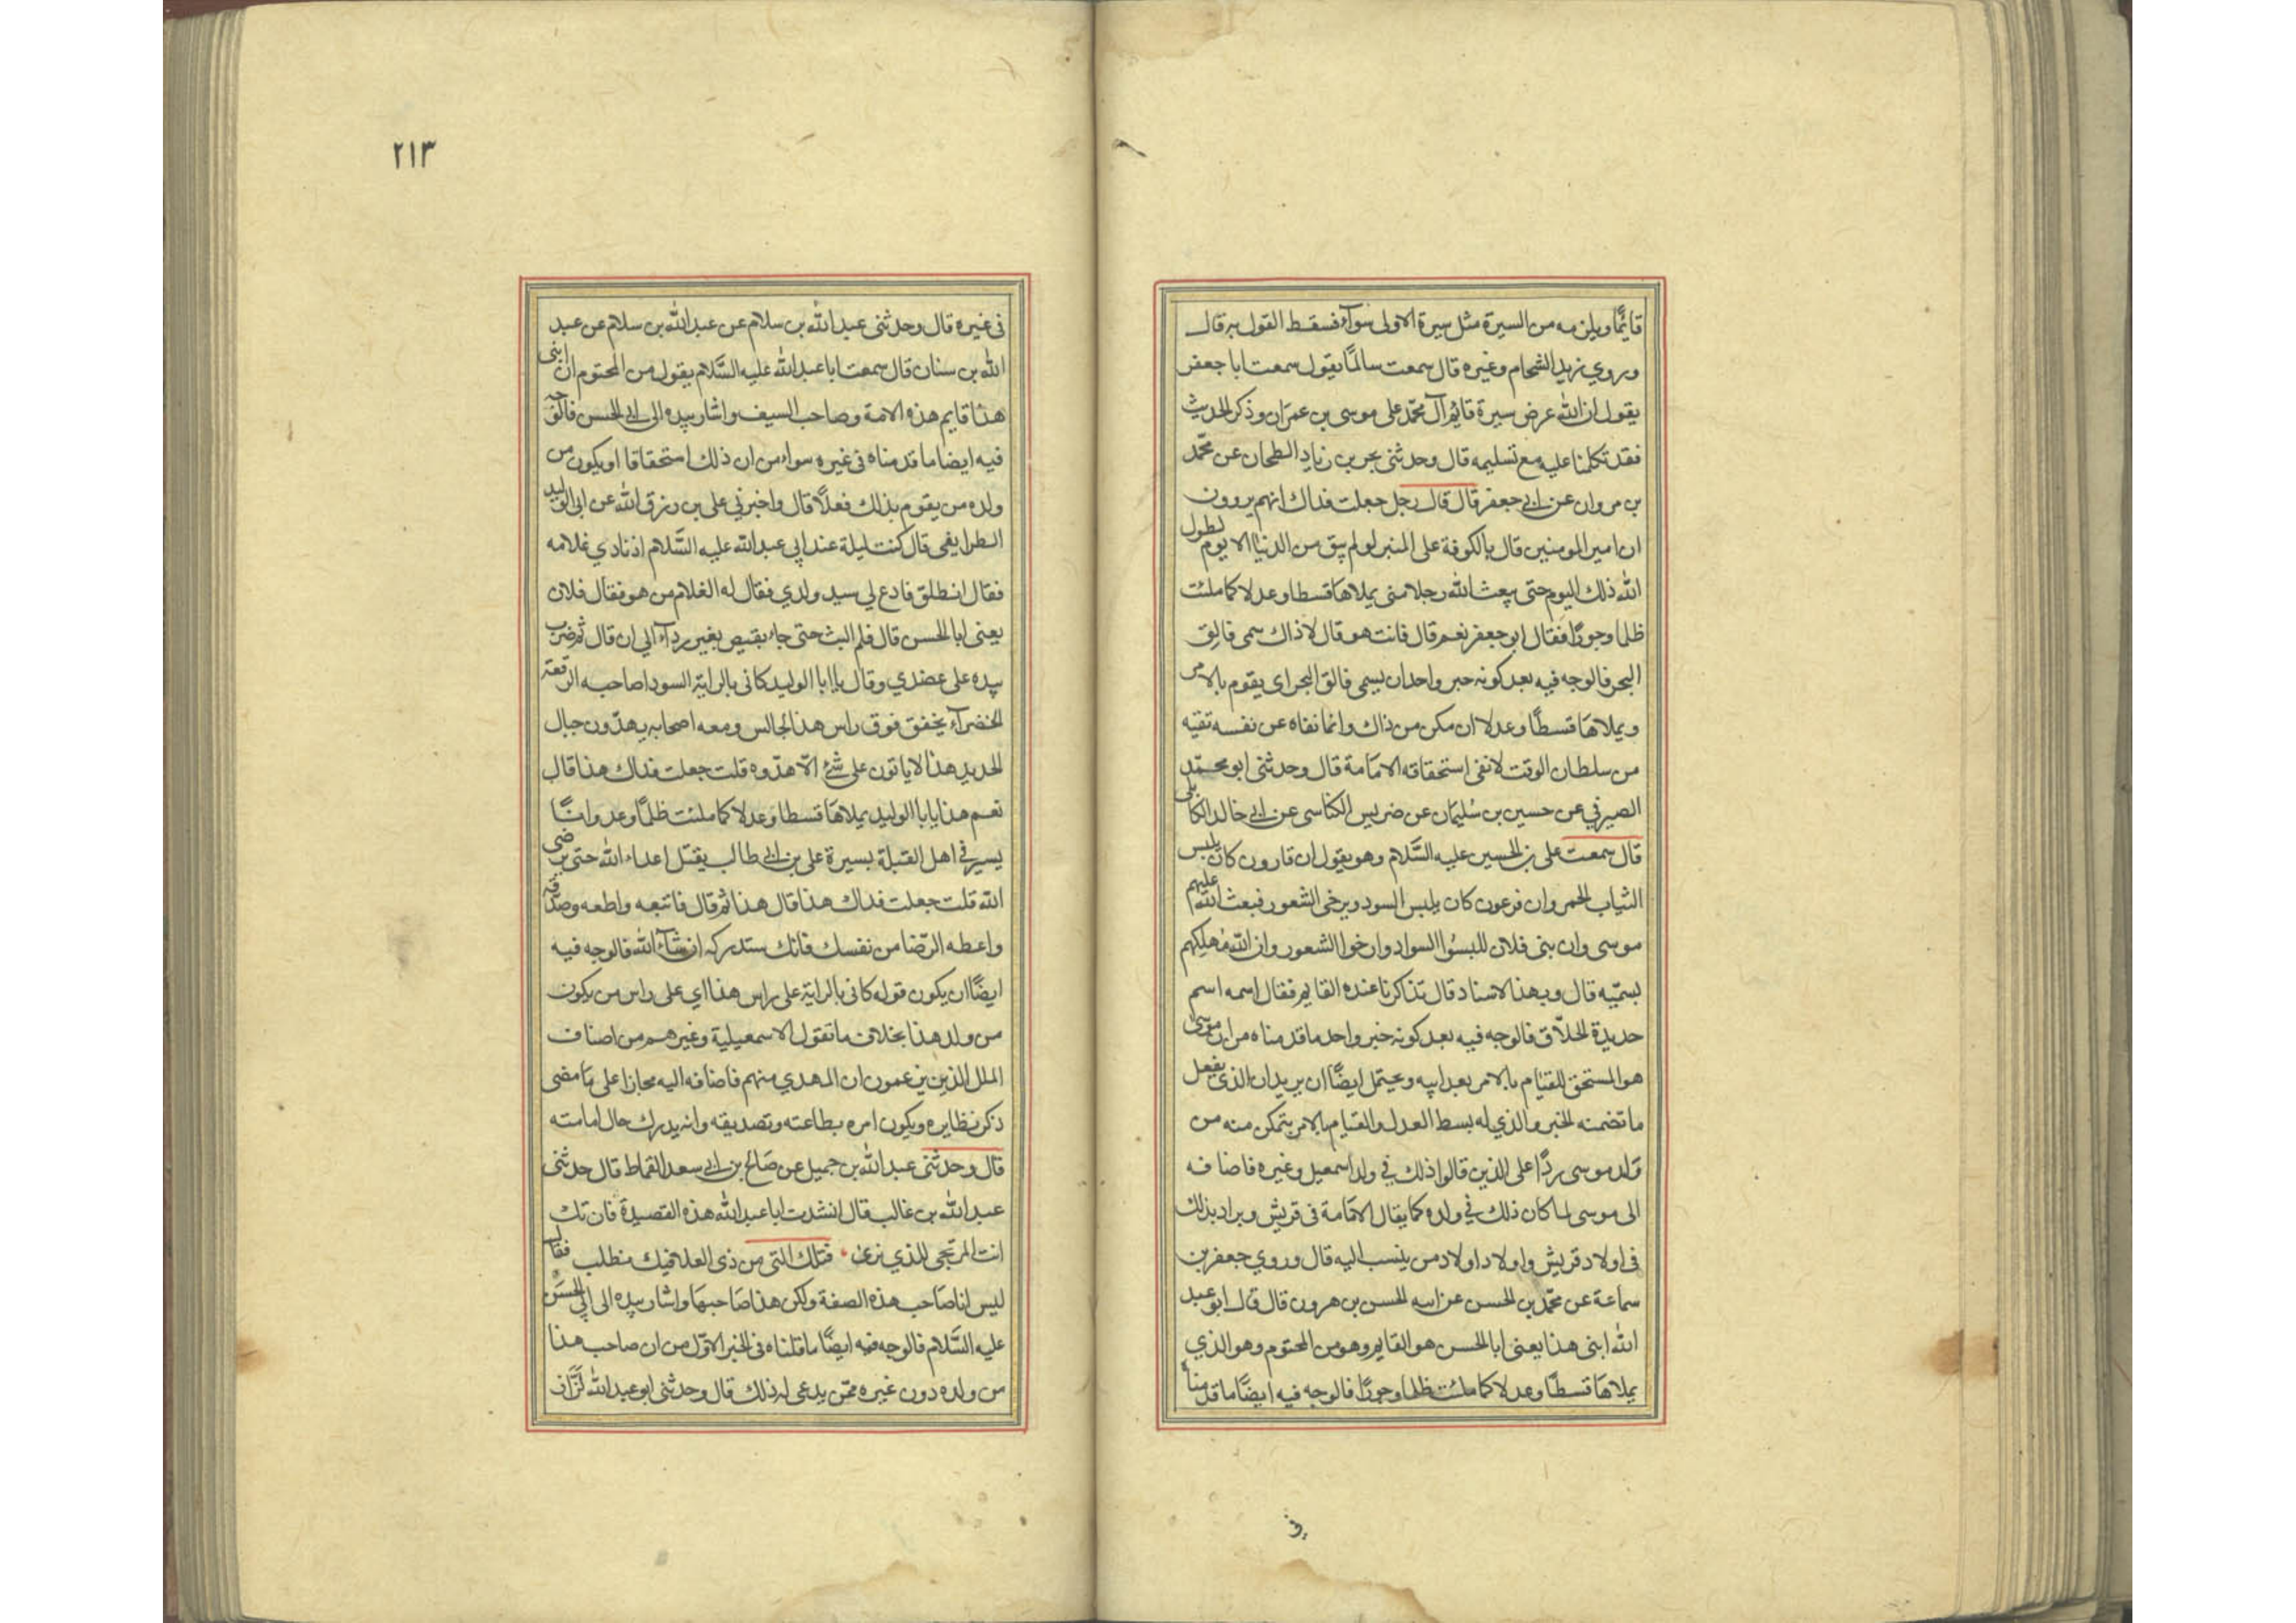 قايمًا ويلزمه من السيرة مثل سيرة الاولى سوآء فسقط القول به قال
وروي زيد الشحام وغيره قال سمعت سالمًا يقول سمعت ابا جعفر
يقول ان الله عرض سيرة قايم آل محمّد على موسى بن عمران وذكر الحديث
فقد تكلمنا عليه مع تسليمه قال وحدثنى بحر بن زياد الطحان عن محمّد
بن مروان عن ابي جعفر قال قال رجل جعلت فداك انهم يروون
ان امير المومنين قال بالكوفة على المنبر لو لم يبق من الدنيا الا يوم لطول
الله ذلك اليوم حتى يبعث الله رجلا منى يملاها قسطا وعدلا كما ملئت
ظلما وجورًا فقال ابو جعفر نعم قال فانت هو قال لا ذاك سمى فالق
البحر فالوجه فيه بعد كونه خبر واحد ان يسمى فالق البحر اى يقوم بالامر
ويملاها قسطًا وعدلا ان مكن من ذاك وانما نفاه عن نفسه تقيه
من سلطان الوقت لا نفى استحقاقه الامامة قال وحدثنى ابو محمّد
الصيرفي عن حسين بن سُليمان عن ضريس الكناسى عن ابي خالد الكابلى
قال سمعت على بن الحسين عليه السَّلام وهو يقول ان قارون كان يلبس
الثياب الحمر وان فرعون كان يلبس السود ويرخى الشعور فبعث الله عليهم
موسى وان بنى فلان للبسُوا السواد وارخوا الشعور وان الله مُهلكهم
بسميّه قال وبهذا الاسناد قال تذاكرنا عنده القايم فقال اسمه اسم
حديدة الحلاّق فالوجه فيه بعد كونه خبر واحد ما قدمناه من ان موسى
هو المستحق للقيام بالامر بعد ابيه ويحتمل ايضًا ان يريد ان الذى يفعل
ما تضمنه الخبر والذي له بسط العدل والقيام بالامر يتمكن منه من
وَلد موسى ردًا على الذين قالوا ذلك في ولد اسمعيل وغيره فاضافه
الى موسى لما كان ذلك في ولده كما يقال الامامة فى قريش ويراد بذلك
فى اولاد قريش واولاد اولاد من ينسب اليه قال وروي جعفر بن
سماعة عن محمّد بن الحسن عن ابيه الحسن بن هرون قال قال ابو عبد
الله ابنى هذا يعنى ابا الحسن هو القايم وهو من المحتوم وهو الذي
يملاها قسطًا وعدلا كما ملئت ظلما وجورًا فالوجه فيه ايضًا ما قدمناه
في
٢١٣
فى غيره قال وحدثنى عبد الله بن سلام عن عبد الله بن سلام عن عبد
الله بن سنان قال سمعت ابا عبد الله عليه السَّلام يقول من المحتوم ان ابنى
هذا قايم هذه الامة وصاحب السيف واشار بيده الى ابي الحسن فالوجه
فيه ايضا ما قدمناه فى غيره سواء من ان ذلك استحقاقا او يكون من
ولده من يقوم بذلك فعلًا قال واخبرني على بن رزق الله عن ابى الوليد
الطرايفى قال كنت ليلة عند ابي عبد الله عليه السَّلام اذ نادي غلامه
فقال انطلق فادع لي سيد ولدي فقال له الغلام من هو فقال فلان
يعنى ابا الحسن قال فلم البث حتى جاء بقميص بغير ردآء الي ان قال ثم ضرب
بيده على عضدي وقال يا ابا الوليد كانى بالراية السودا صاحبه الرقعة
الخضرآء يخفق فوق راس هذا الجالس ومعه اصحابه يهدّون جبال
الحديد هذا لا ياتون على شئ الّا هدّوه قلت جعلت فداك هذا قال
نعم هذا يابا الوليد يملاها قسطا وعدلا كما ملئت ظلمًا وعدوانًا
يسير في اهل القبلة بسيرة على بن ابي طالب يقتل اعداء الله حتى يرضى
الله قلت جعلت فداك هذا قال هذا ثم قال فاتبعه واطعه وصدقه
واعطه الرّضا من نفسك فانك ستدركه ان شآء الله فالوجه فيه
ايضًا ان يكون قوله كانى بالراية على راس هذا اي على راس من يكون
من ولد هذا بخلاف ما تقول الاسمعيلية وغيرهم من اصناف
الملل الذين يزعمون ان المهدي منهم فاضافه اليه مجازا على ما مضى
ذكر نظايره ويكون امره بطاعته وتصديقه وانه يدرك حال امامته
قال وحدثنى عبد الله بن جميل عن صَالح بن ابي سعد القماط قال حدثنى
عبد الله بن غالب قال انشدت ابا عبد الله هذه القصيدة فان تك
انت المرتجى للذي نرى • فتلك التى من ذى العلا فيك نطلب فقال
ليس انا صَاحب هذه الصفة ولكن هذا صَاحبها واشار بيده الى ابي الحسَن
عليه السَّلام فالوجه فيه ايضًا ما قلناه فى الخبر الاوّل من ان صاحب هذا
من ولده دون غيره ممّن يدعى له ذلك قال وحدثنى ابو عبد الله لذّاذ